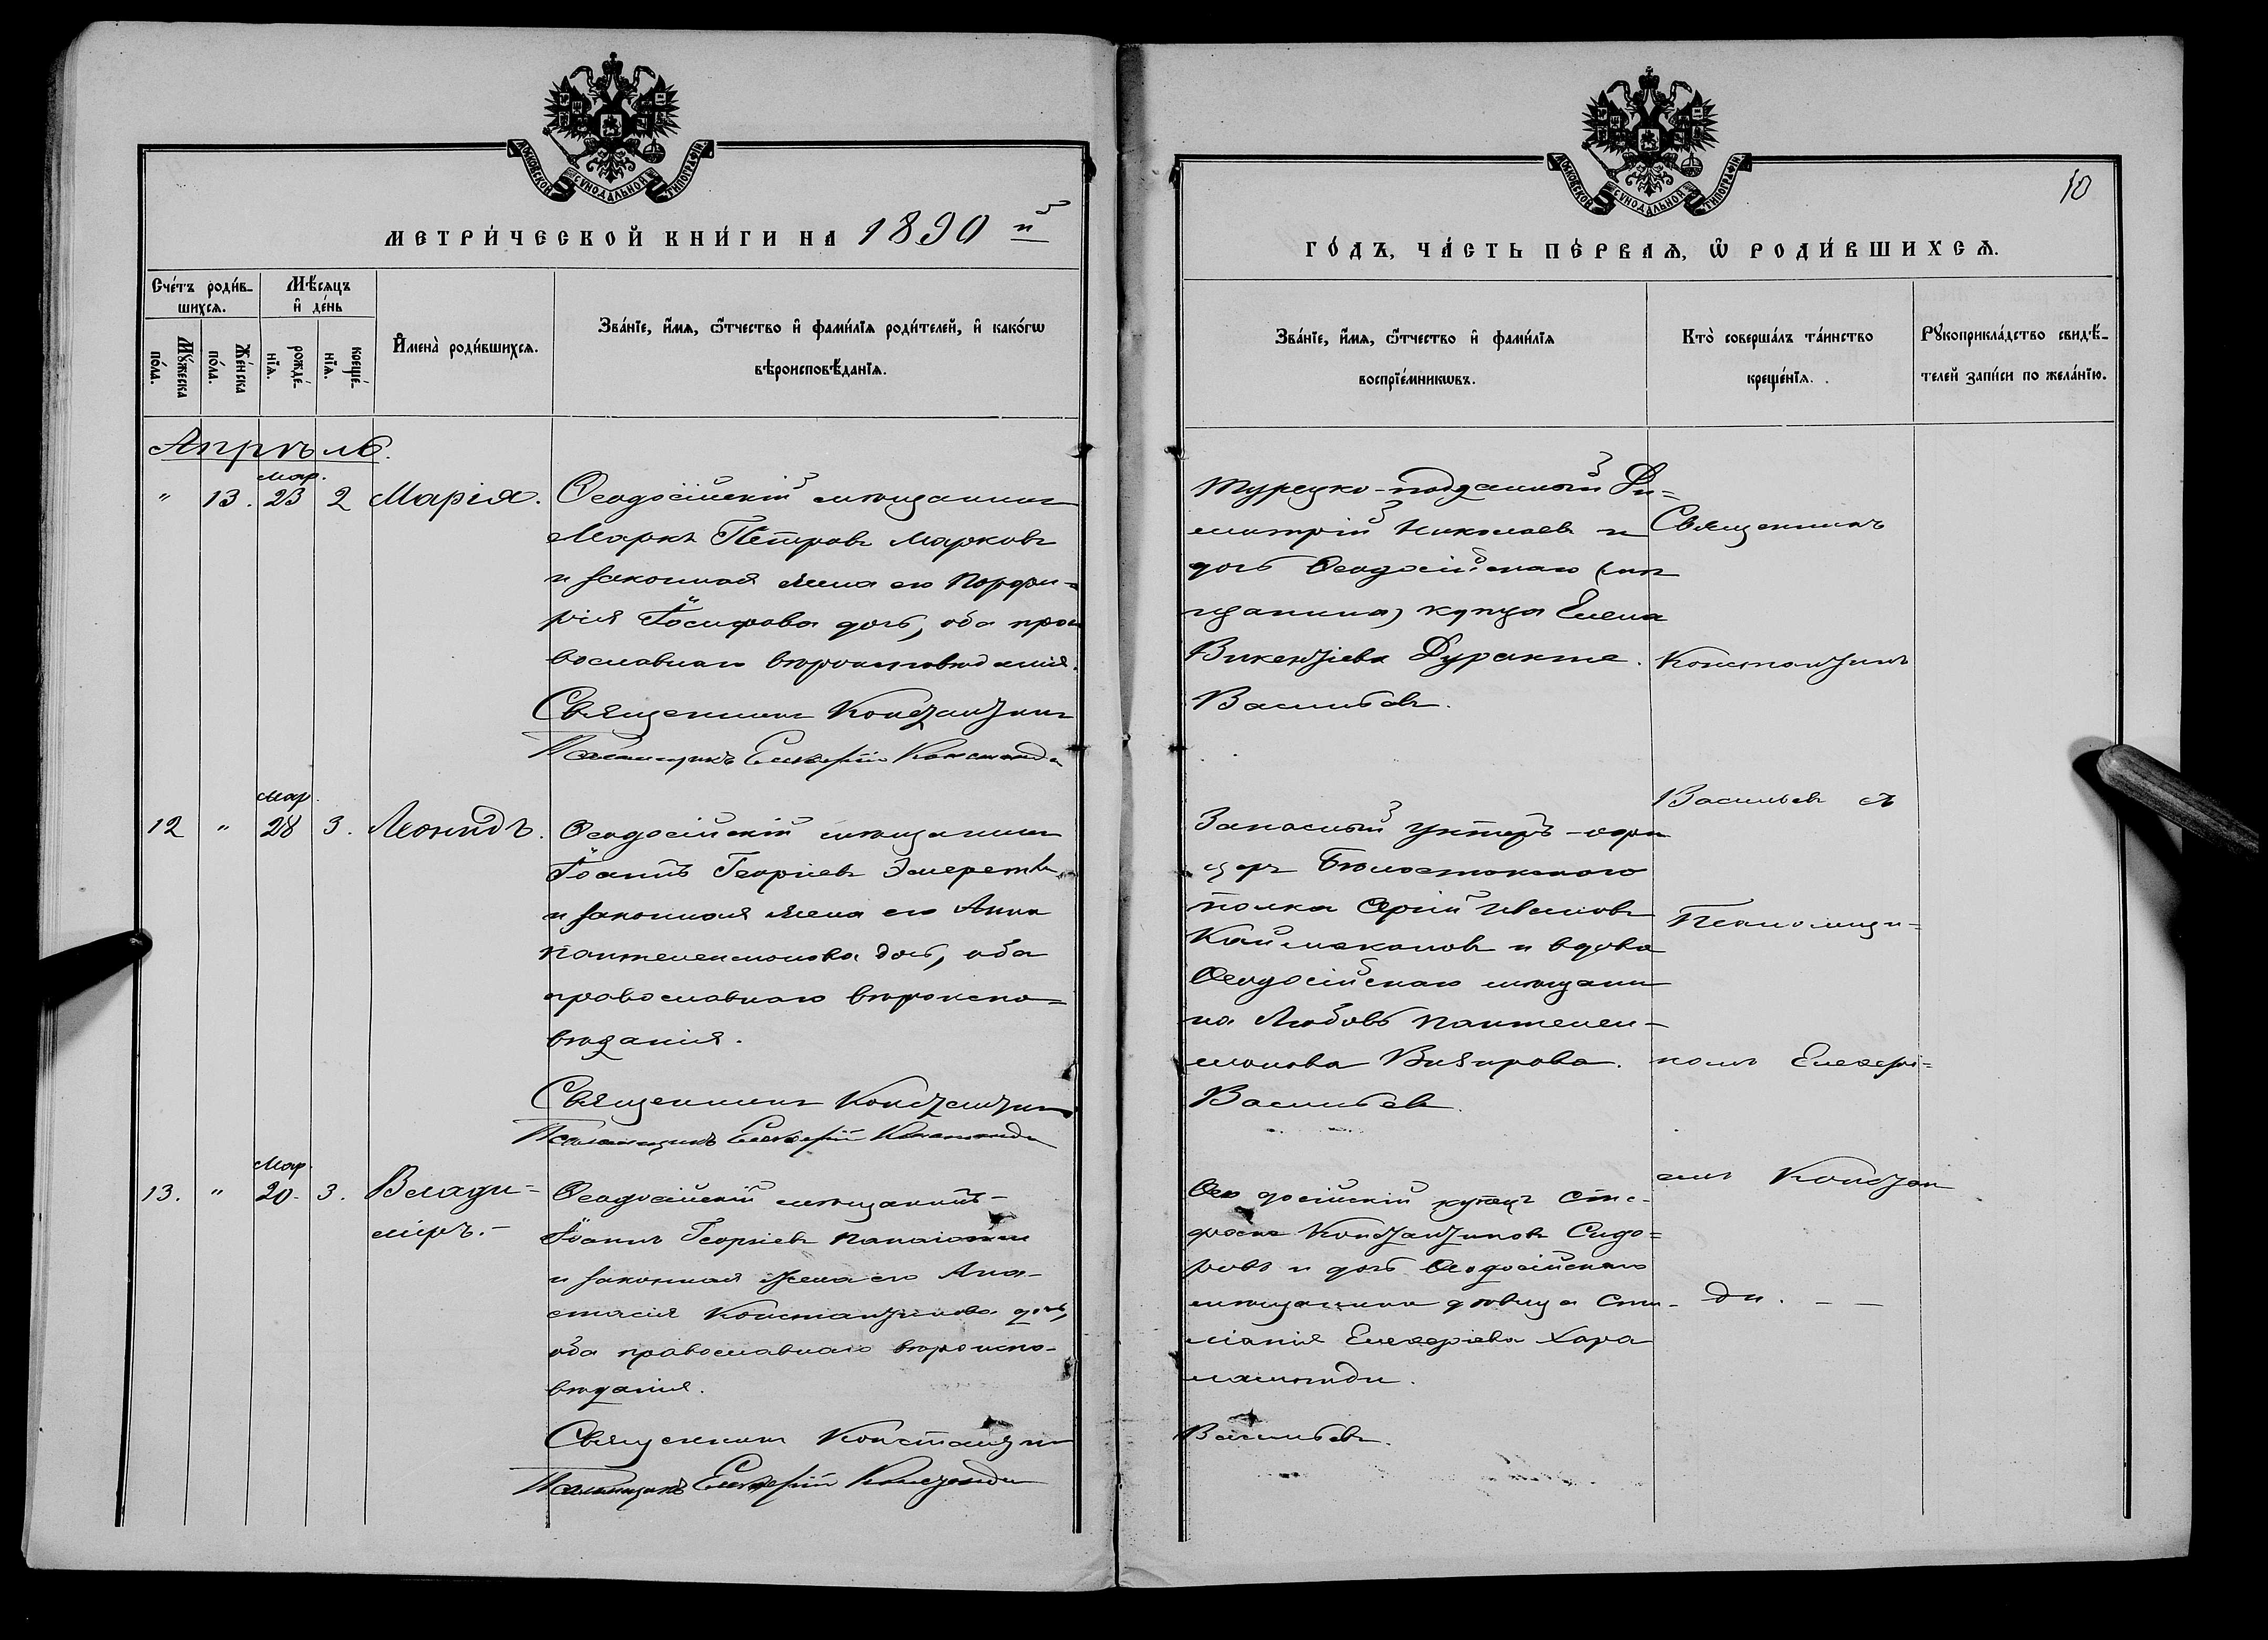 МОСКОВСКОЙ СѴНОДАЛЬНОЙ ТИПОГРАФІИ
МЕТРИ́ЧЕСКОЙ КНИ́ГИ НА 1890 й
Сче́тъ роди́в-
шихсѧ.
Мѣ́сѧцъ
и҆ де́нь
Мꙋ́жеска
по́ла.
Же́нска
по́ла.
рожде́-
нїѧ.
креще́-
нїѧ.
И҆мена̀ роди́вшихсѧ.
Зва́нїе, и҆́мѧ, ѻ҆́тчество и҆ фами́лїѧ роди́телей, и҆ како́гѡ
вѣроисповѣ́данїѧ.
Апрѣль.
" 13. Мар. 23 2 Марія.
Ѳеодосійскій мѣщанинъ
Маркъ Петровъ Марковъ
и законная жена его Порфи-
рія Іосифова дочь, оба пра
вославнаго вѣроисповѣданія.
Священникъ Константинъ
Псаломщикъ Елевферій Констанди
12 " Мар. 28 3. Леонидъ.
Ѳеодосійскій мѣщанинъ
Іоаннъ Георгіевъ
и законная жена его Анна
Пантелеимонова дочь, оба
православнаго вѣроиспо-
вѣданія.
Священникъ Константинъ
Псаломщикъ Елевферій Констанди
13. " Мар. 20. 3. Влади-
міръ.-
Ѳеодосійскій мѣщанинъ-
Іоаннъ Георгіевъ
и законная жена его Ана-
стасія Константинова дочь,
оба православнаго вѣроиспо-
вѣданія.
Священникъ Константинъ
Псаломщикъ Елевферій Констанди
МОСКОВСКОЙ СѴНОДАЛЬНОЙ ТИПОГРАФІИ
10
ГО́ДЪ, ЧА́СТЬ ПЕ́РВАѦ, Ѡ҆ РОДИ́ВШИХСѦ.
Зва́нїе, и҆́мѧ, ѻ҆́тчество и҆ фами́лїѧ
воспрїе́мникѡвъ.
Кто̀ соверша́лъ та́инство
креще́нїѧ.
Рꙋкоприкла́дство свидѣ́-
телей за́писи по жела́нїю.
Турецко-подданный Ди-
митрій Николаевъ и
дочь Ѳеодосійскаго (мѣ
щанина) купца Елена
Викентіева Дуранте.
Васильевъ.
Запасный унтеръ-офи
церъ Бѣлостокскаго
полка Ивановъ
и вдова
Ѳеодосійскаго мѣщани
на Любовь Пантелеи-
монова
Васильевъ.
Ѳеодосійскій купецъ Сте-
фанъ Константиновъ Сидо-
ровъ и дочь Ѳеодосійскаго
мѣщанина дѣвица Сти-
ліанія Елевферіева Хара
ламбиди.
Васильевъ.
Священникъ
Константинъ
Васильевъ съ
Псаломщи-
комъ Елевфері-
емъ Констан
ди. - -